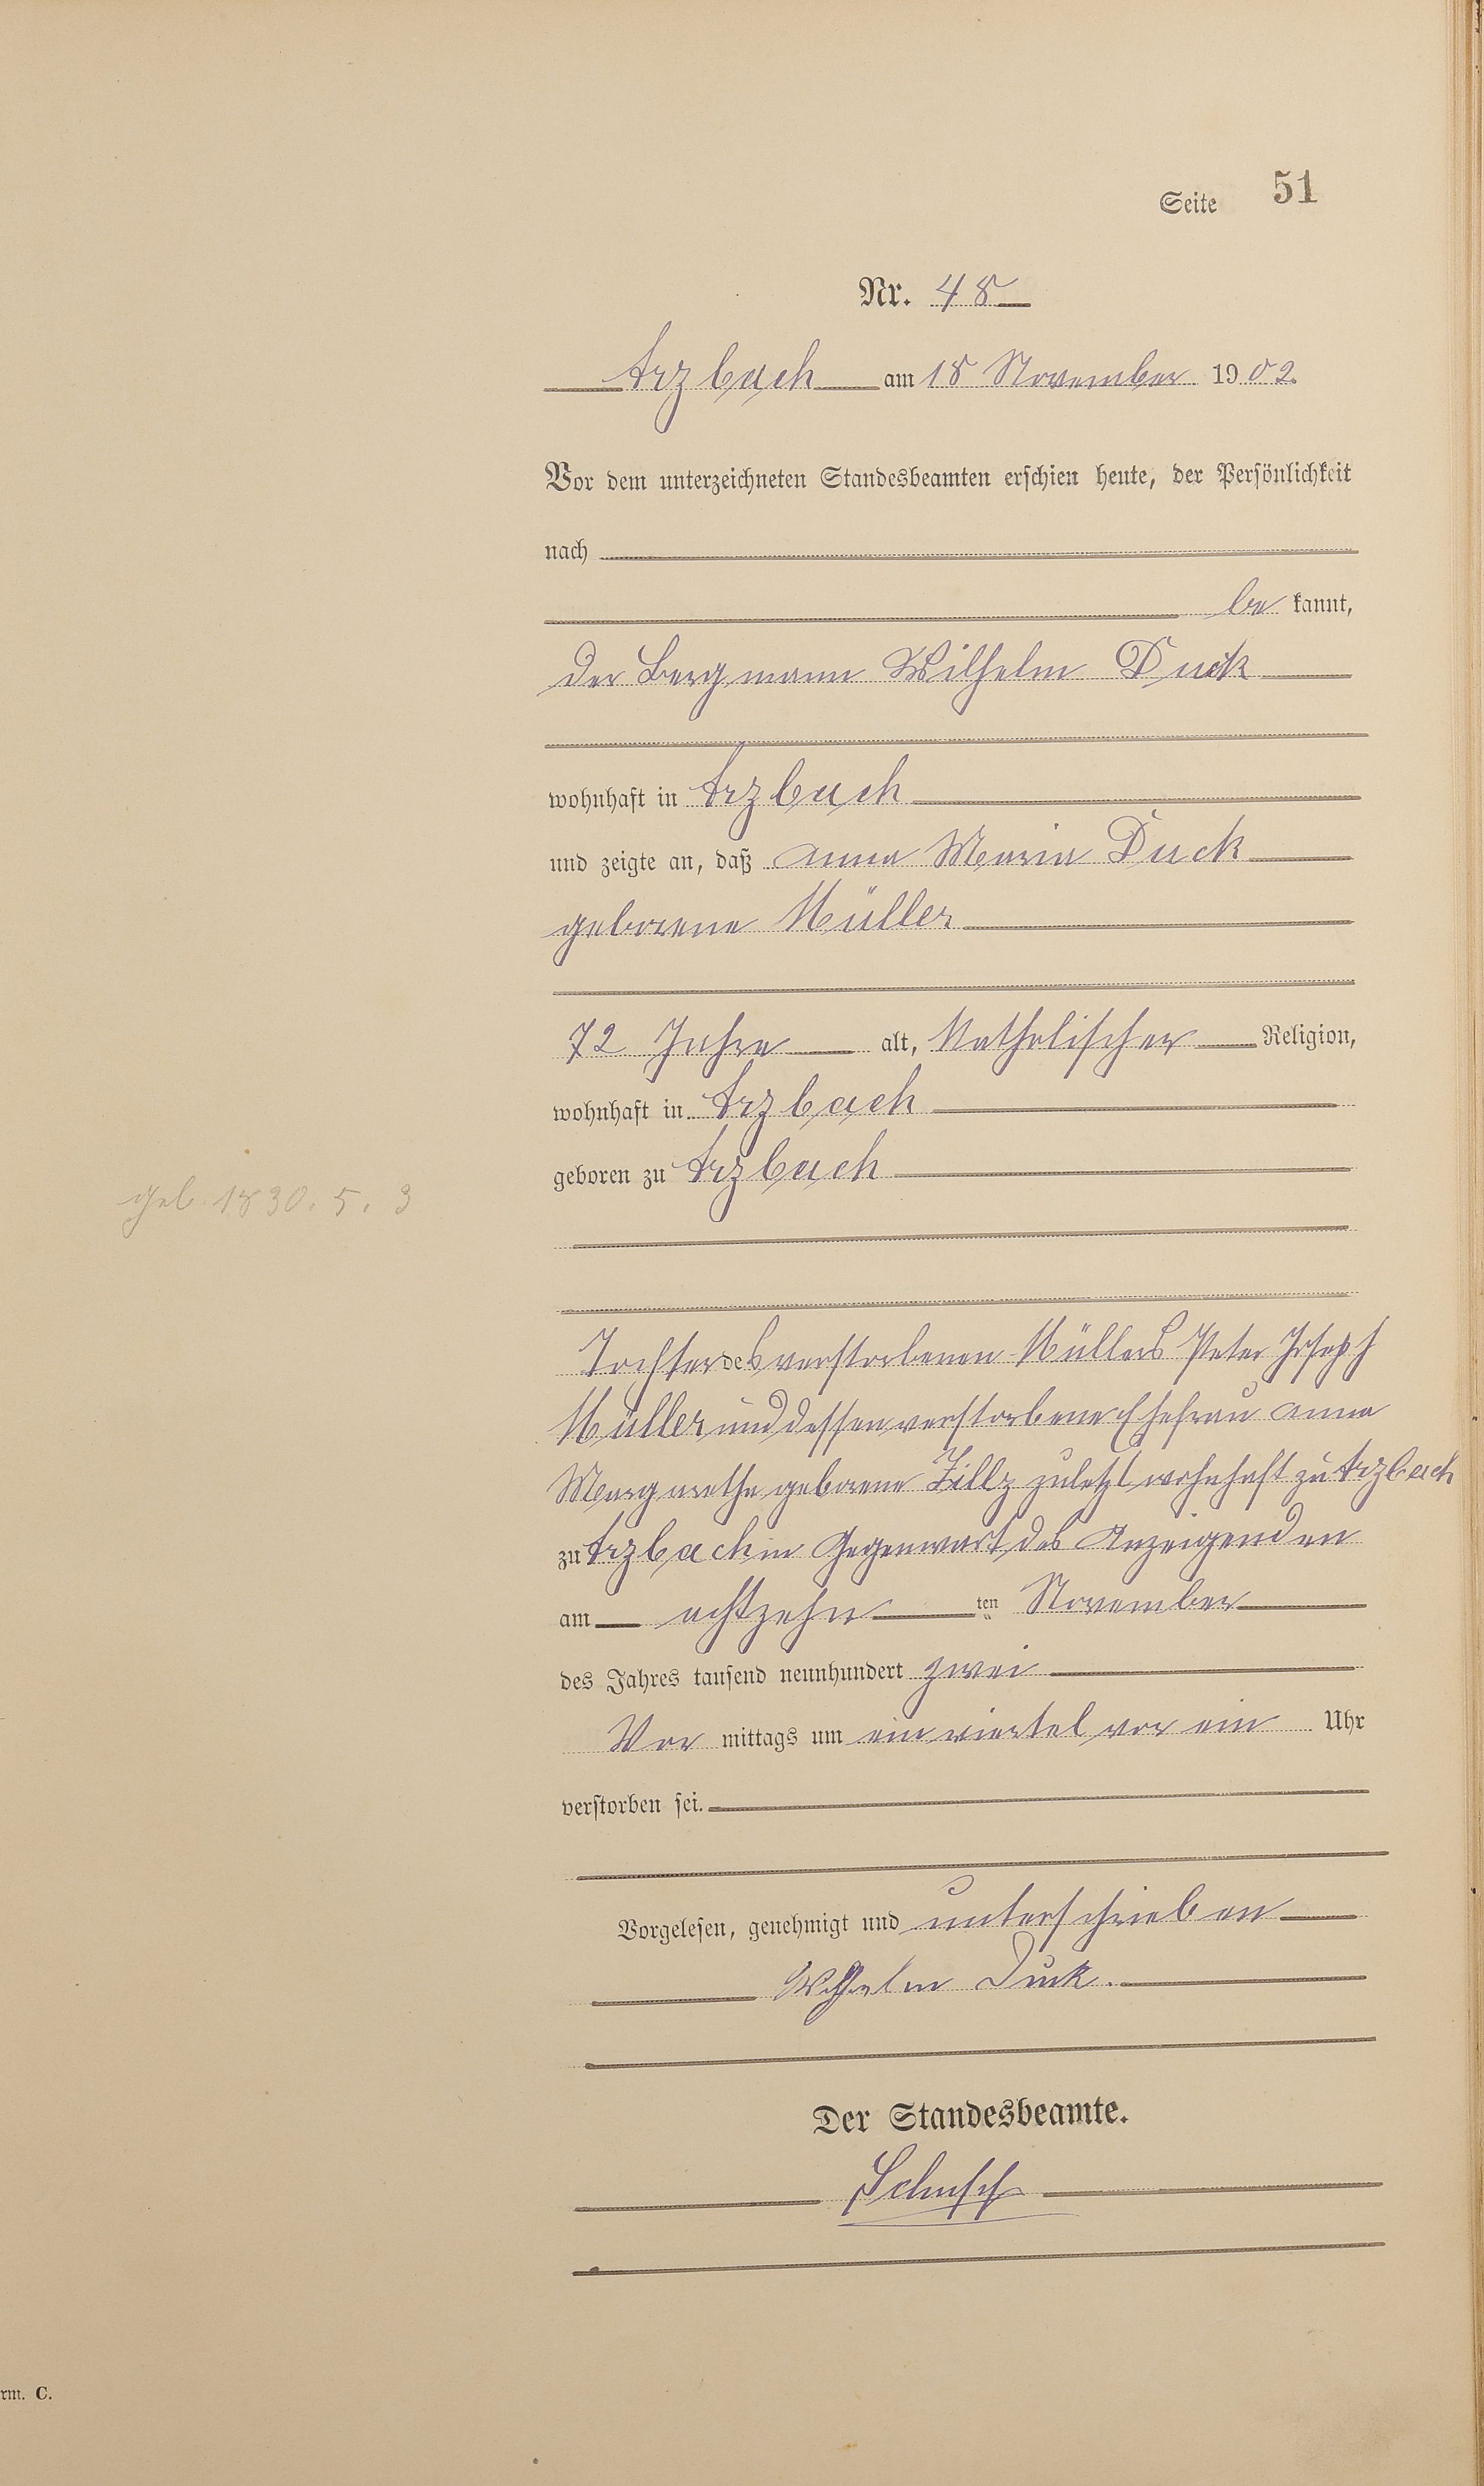 Seite 51
Nr. 48
Arzbach am 18 November 1902.
Vor dem unterzeichneten Standesbeamten erschien heute, der Persönlichkeit
nach
be kannt,
der Bergmann Wilhelm Duck
wohnhaft in Arzbach
und zeigte an, daß Anna Maria Duck
geborene Müller
72 Jahre alt, Katholischer Religion,
wohnhaft in Arzbach
geboren zu Arzbach
geb. 1830. 5. 3
Tochter des verstorbenen Müllers Peter Joseph
Müller und dessen verstorbene Ehefrau Anna
Margarethe geborene Zillz zuletzt wohnhaft zu Arzbach
zu Arzbach in Gegenwart des Anzeigenden
am achtzehn ten November
des Jahres tausend neunhundert zwei
Vor mittags um ein viertel vor ein Uhr
verstorben sei.
Vorgelesen, genehmigt und unterschrieben
Wilhelm Duck.
Der Standesbeamte.
rm. C.